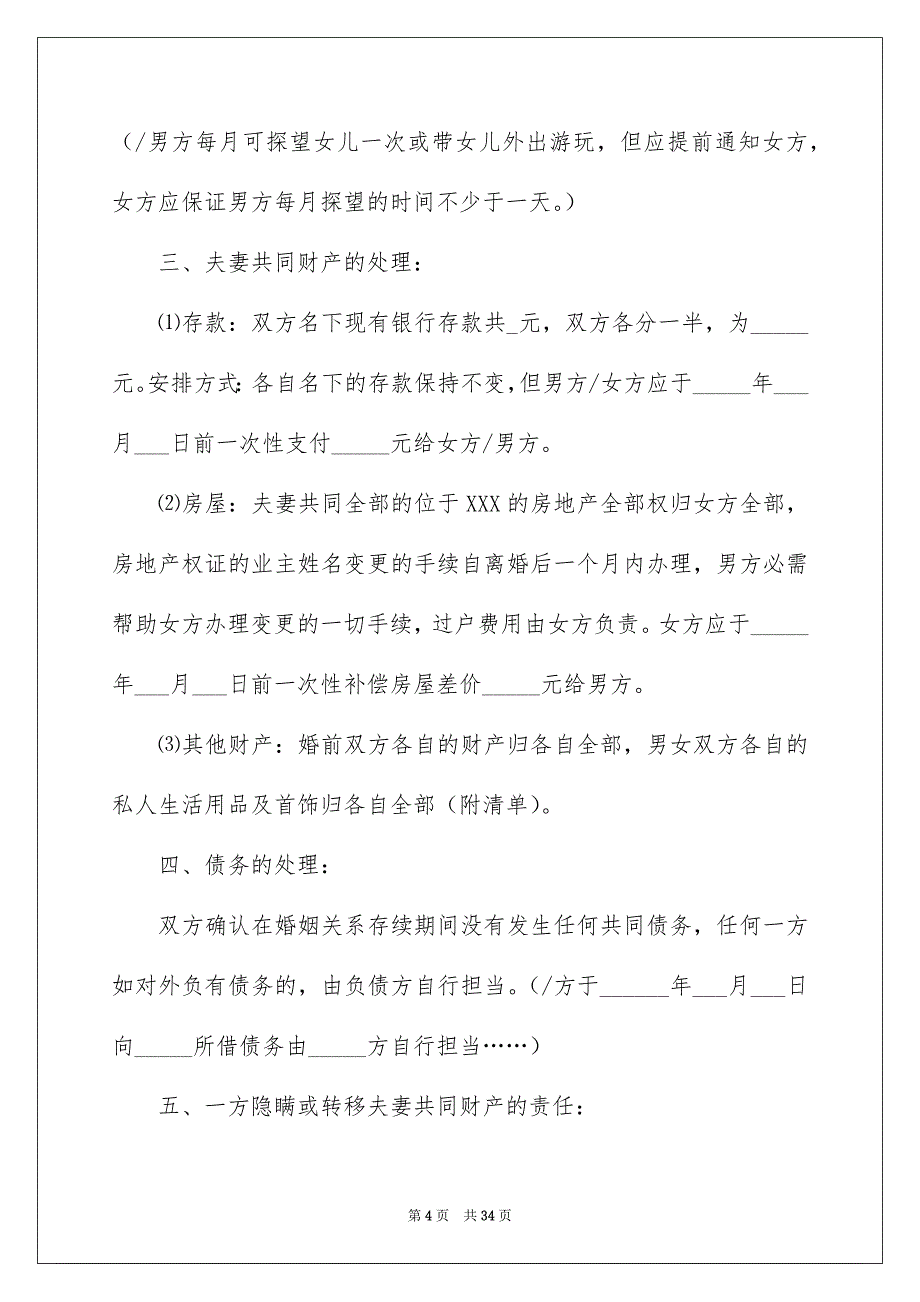 （/男方每月可探望女儿一次或带女儿外出游玩，但应提前通知女方，
女方应保证男方每月探望的时间不少于一天。）
三、夫妻共同财产的处理：
⑴存款：双方名下现有银行存款共_元，双方各分一半，为_____
元。安排方式：各自名下的存款保持不变，但男方/女方应于_____年___
月___日前一次性支付_____元给女方/男方。
⑵房屋：夫妻共同全部的位于 XXX 的房地产全部权归女方全部，
房地产权证的业主姓名变更的手续自离婚后一个月内办理，男方必需
帮助女方办理变更的一切手续，过户费用由女方负责。女方应于_____
年___月___日前一次性补偿房屋差价_____元给男方。
⑶其他财产：婚前双方各自的财产归各自全部，男女双方各自的
私人生活用品及首饰归各自全部（附清单）。
四、债务的处理：
双方确认在婚姻关系存续期间没有发生任何共同债务，任何一方
如对外负有债务的，由负债方自行担当。（/方于______年___月___日
向_____所借债务由_____方自行担当……）
五、一方隐瞒或转移夫妻共同财产的责任：
第 4 页 共 34 页